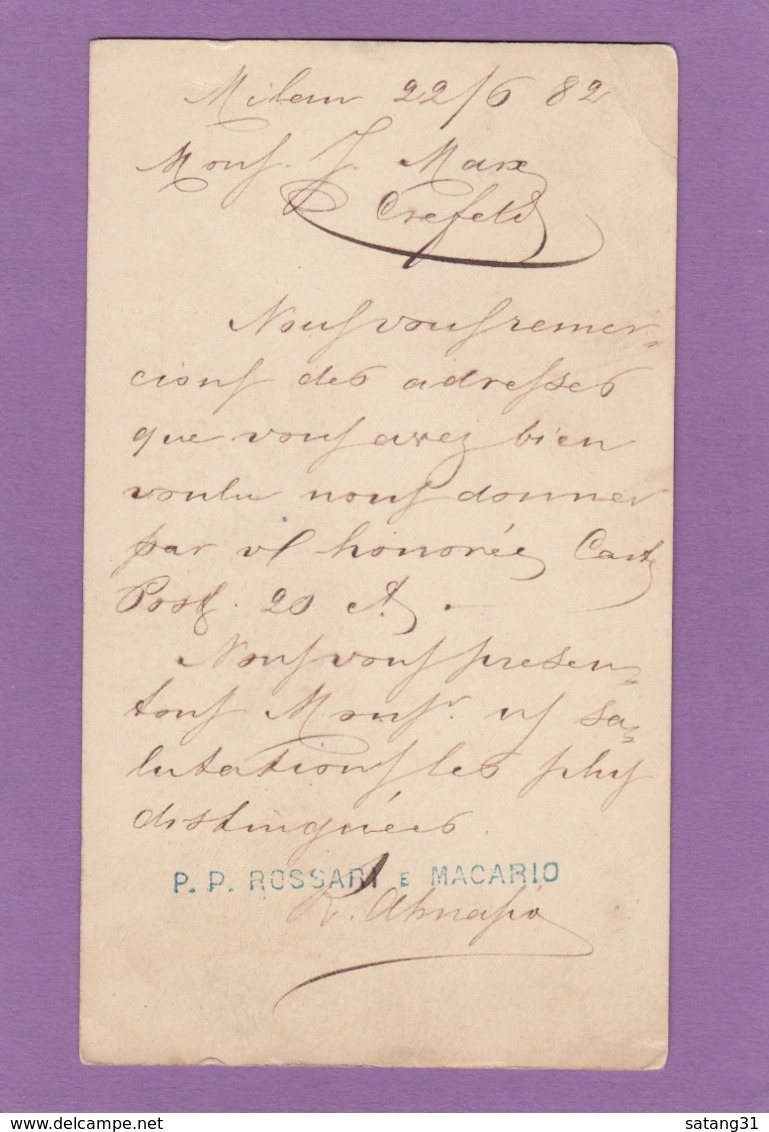 Milan 22/6 82
Mons. J. Marx
Crefeld
Nous vous remer-
cions des adresses
que vous avez bien
voulu nous donner
par vs honorée Carte
Post. 20 ct.
Nous vous presen-
tons Monsr. ns sa-
lutations les plus
distinguées.
P. P. ROSSARI E MACARIO
www.delcampe.net
satang31